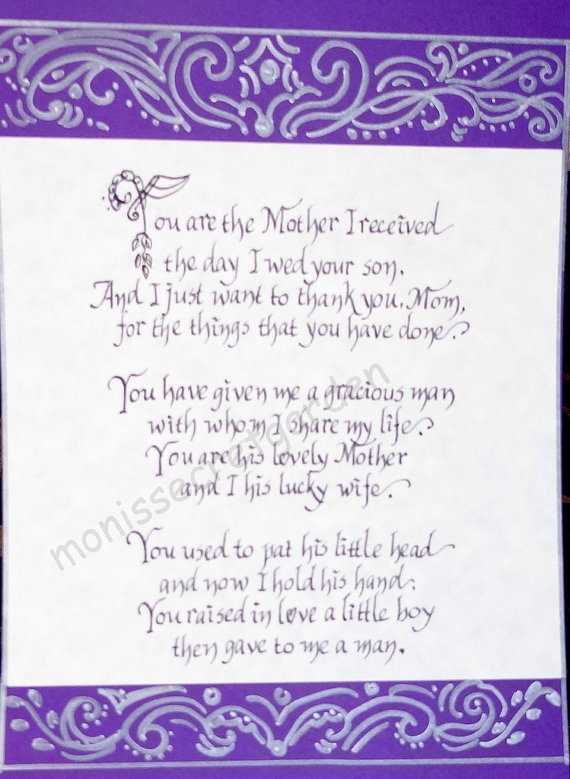 You are the Mother I received
the day I wed your son.
And I just want to thank you, Mom,
for the things that you have done.
You have given me a gracious man
with whom I share my life.
You are his lovely Mother
and I his lucky wife.
You used to pat his little head
and now I hold his hand.
You raised in love a little boy
then gave to me a man.
monissecretgarden